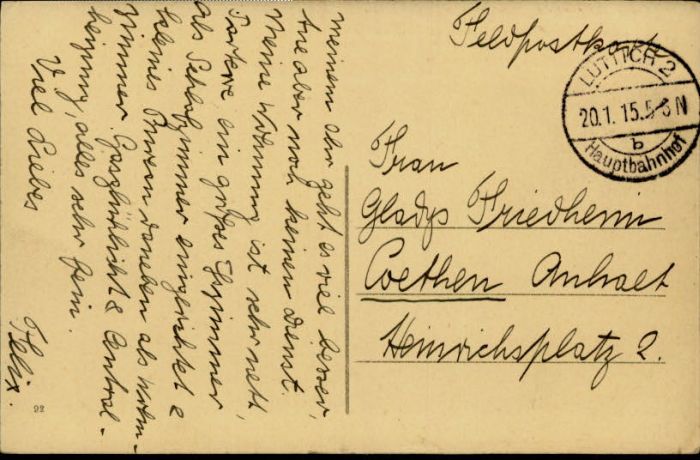 Feldpostkarte
LÜTTICH 2
20.1.15. 5-6 N
b
Hauptbahnhof
Frau
Gladys Friedheim
Coethen Anhalt
Heinrichsplatz 2.
meinem Ohr geht es viel besser,
tue aber noch keinen Dienst.
Meine Wohnung ist sehr nett,
Parterre ein großes Eßzimmer
als Schlafzimmer eingerichtet &
kleines Bureau daneben als Wohn-
zimmer Gasglühlicht & Central-
heizung, alles sehr fein.
Viel Liebes
Felix.
92